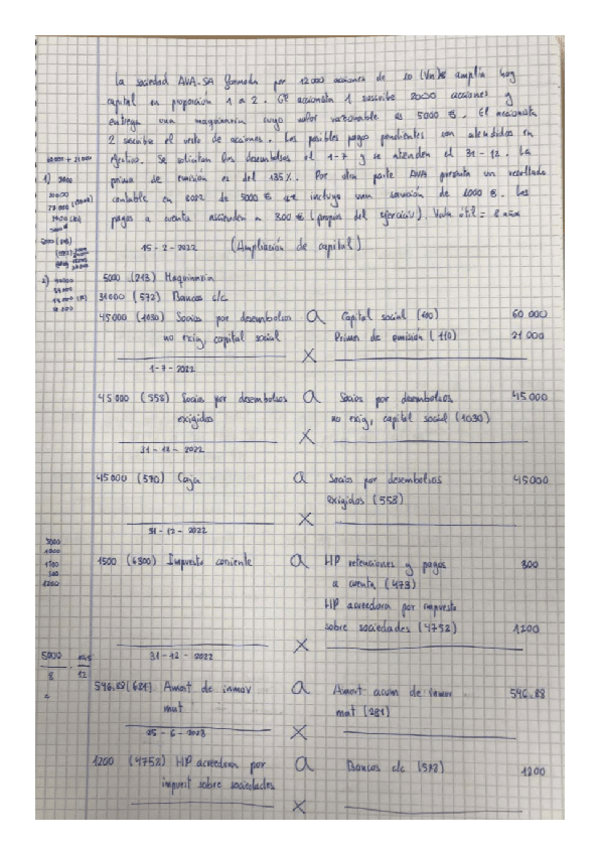 La sociedad AVA.SA formada por 12000 acciones de 10 (Vn)€ amplía hoy
capital en proporción 1 a 2. El accionista 1 suscribe 2000 acciones y
entrega una maquinaria cuyo valor razonable es 5000 €. El accionista
2 suscribe el resto de acciones. Los posibles pagos pendientes son atendidos en
efectivo. Se solicitan los desembolsos el 1-7 y se atienden el 31-12. La
prima de emisión es del 135%. Por otra parte AVA presenta un resultado
contable en 2022 de 5000 € que incluye una sanción de 1000 €. Los
pagos a cuenta ascienden a 300 € (propia del ejercicio). Vida útil = 8 años
15-2-2022 (Ampliación de capital)
5000 (213) Maquinaria
31000 (572) Bancos c/c
45000 (1030) Socios por desembolsos a Capital social (100) 60 000
no exig, capital social Prima de emisión (110) 21 000
X
1-7-2022
45000 (558) Socios por desembolsos a Socios por desembolsos 45.000
exigidos no exig, capital social (1030)
X
31-12-2022
45000 (570) Caja a Socios por desembolsos 45000
exigidos (558)
X
31-12-2022
1500 (6300) Impuesto corriente a HP retenciones y pagos 300
a cuenta (473)
HP acreedora por impuesto
sobre sociedades (4752) 1200
X
5000
8 12
31-12-2022
546.88 (681) Amort de inmov a Amort acum de inmov 546.88
mat mat (281)
X
25-6-2023
1200 (4752) HP acreedora por a Bancos c/c (572) 1200
impuest sobre sociedades
X